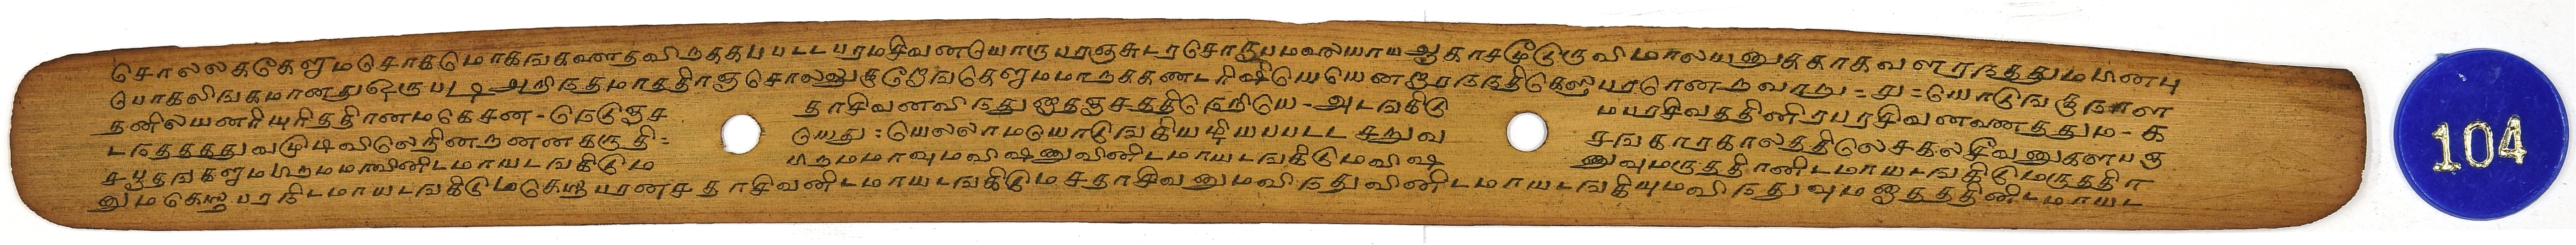 சொலலககேளுமசொகமொகஙகணதவிருககபபடடபரமசிவனயொருபரஞசுடரசொரூபமவலியாயஆகாசமூடுருவிமாலயனுககாகவளரநததுமபினபு
யொகலிஙகமானதுஒருபடிஅறிநதமாததிரஞசொலலுகுறெஙகெளுமமாருககணடரிஷியெயெனறுநநதிகெசுபரரொனறுவாறு = ு = யொடுஙகுநாள
தனிலயனரியுரிததிரனமகேசன - டுெடுஞச தாசிவனவிநதுநதஞசததிநெறியெ - அடஙகிடு மபரசிவததினிரபரசிவனவணததும - க
டநதததுவமுடிவிலெநினறானனகருதி = யெது : யெலலாமயொடுஙகியழியபபடட சறுவ சஙகாரகாலததிலெசகலசீவனுகளுபஞ
சபூதஙகளுமபிறுமமாவினிடமாயடஙகிடும பிருமமாவுமவிஷணுவினிடமாயடஙகிடுமவிஷ ணுவுமருததிரனிடமாயடஙகிடுமருததிர
னுமகெசுபரநிடமாயடஙகிடுமகெசுபரனுசதாசிவனிடமாயடஙகிடுமசதாசிவனுமவிநதுவினிடமாயடஙகியுமவிநதுவுமநதததினிடமாயட
104